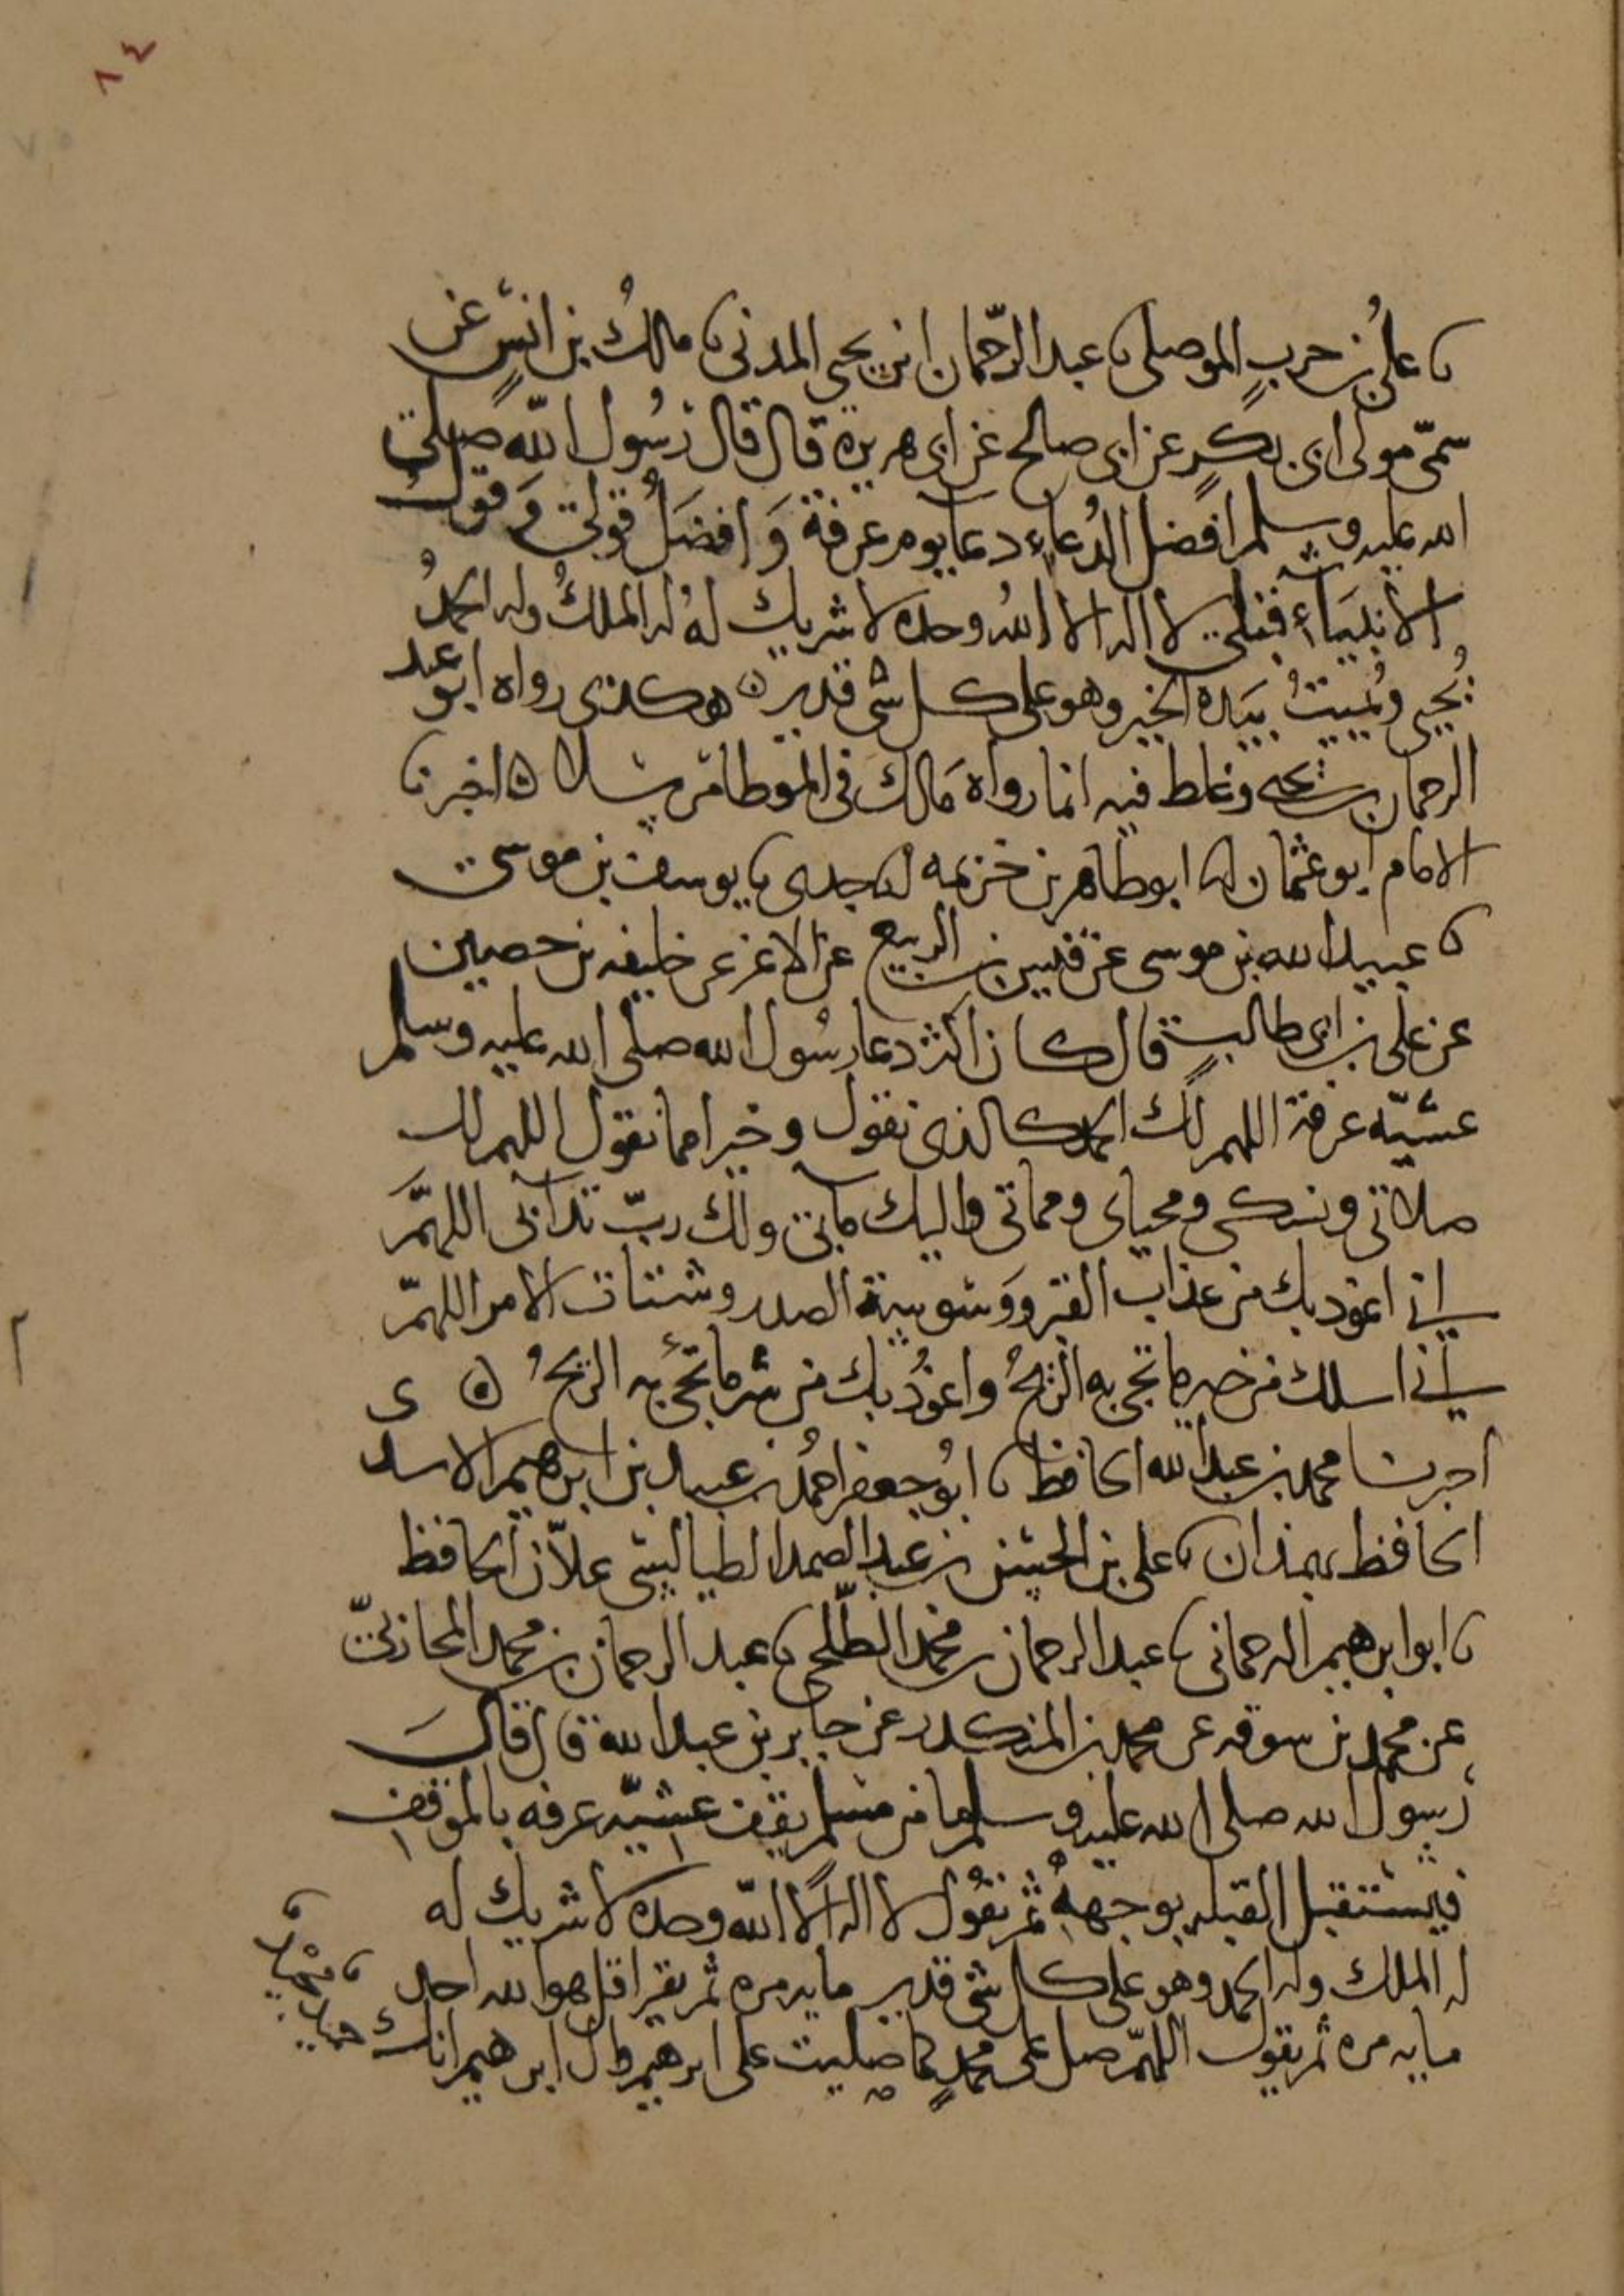 ٨٤
نا علي بن حرب الموصلي نا عبد الرحمان ابن يحيى المدني نا مالك بن انس عن
سمي مولى ابي بكر عن ابي صالح عن ابي هريرة قال قال رسول الله صلى
الله عليه وسلم افضل الدعاء دعا يوم عرفة وافضل قولي وقول
الانبياء قبلي لا اله الا الله وحده لا شريك له له الملك وله الحمد
يحيي ويميت بيده الخير وهو على كل شي قدير ه هكذى رواه ابو عبد
الرحمان بن يحيى وغلط فيه انما رواه مالك في الموطا مرسلا ه اخبرنا
الامام ابو عثمان انا ابو طاهر بن خزيمه انا جدي نا يوسف بن موسى
نا عبيد الله بن موسى عن قيس بن الربيع عن الاغر عن خليفه بن حصين
عن علي بن ابي طالب قال كان اكثر دعا رسول الله صلى الله عليه وسلم
عشيّه عرفة اللهم لك الحمد كالذي نقول وخيرا مما نقول اللهم لك
صلاتي ونسكي ومحياي ومماتي واليك مآبي ولك ربّ تراثي اللهمّ
اني اعوذ بك من عذاب القبر ووسوسة الصدر وشتات الامر اللهمّ
اني اسلك من خير ما تجي به الريح واعوذ بك من شر ما تجئ به الريح ه
اخبرنا محمد بن عبد الله الحافظ نا ابو جعفر احمد بن عبيد بن ابرهيم الاسد ى
الحافظ بهمذان نا علي بن الحسن بن عبد الصمد الطيالسي علاّن الحافظ
نا ابو ابرهيم الترجماني نا عبد الرحمان بن محمد الطلحي نا عبد الرحمان بن محمد المحاربيّ
عن محمد بن سوقه عن محمد بن المنكدر عن جابر بن عبد الله قال قال
رسول الله صلى الله عليه وسلم ما من مسلم يقف عشيّه عرفه بالموقف
فيستقبل القبله بوجهه ثم يقول لا اله الا الله وحده لا شريك له
له الملك وله الحمد وهو على كل شي قدير مايه مره ثم يقرا قل هو الله احد
مايه مره ثم يقول اللهمّ صل على محمد كما صليت على ابرهيم وال ابرهيم انك حميد
مجيد